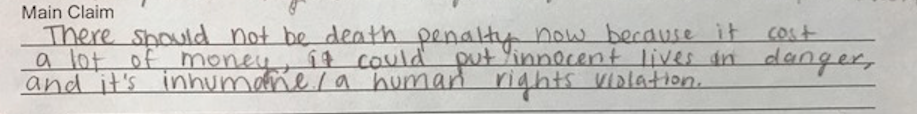 Main Claim
There should not be death penalty now because it cost
a lot of money, it could put innocent lives in danger,
and it's inhumane / a human rights violation.